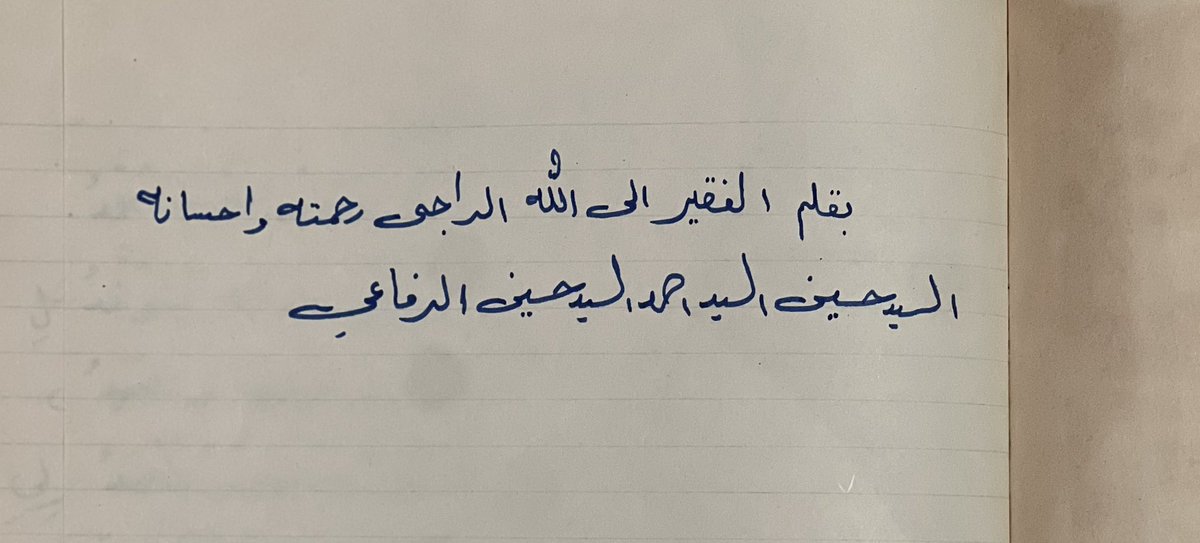 بقلم الفقير الى الله الراجى رحمته واحسانه
السيد حسين السيد احمد السيد حسين الرفاعي